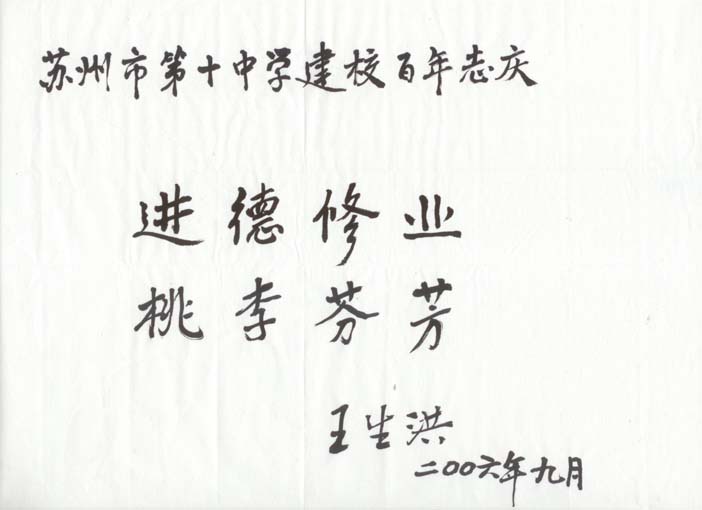 苏州市第十中学建校百年志庆
进德修业
桃李芬芳
王生洪
二〇〇六年九月